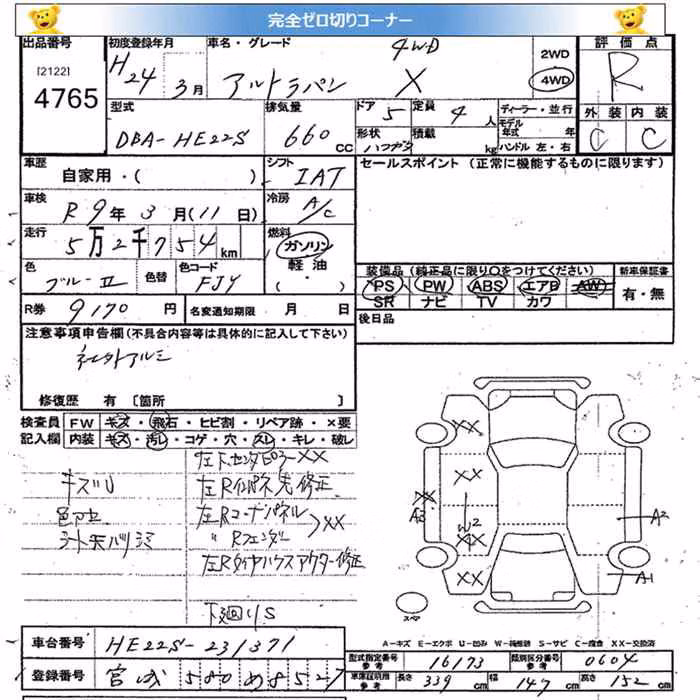 完全ゼロ切りコーナー
出品番号 [2122] 4765
初度登録年月 H24年3月
車名・グレード アルトラパン 4WD X
2WD 4WD
評価点 R
外装 C 内装 C
型式 DBA-HE22S
排気量 660 cc
ドア 5 定員 4人
形状 ハッチバック 積載 kg
ディーラー・並行
モデル年式 年
ハンドル 左・右
車歴 自家用・( )
シフト IAT
セールスポイント (正常に機能するものに限ります)
車検 R9年3月(11日)
冷房 A/C
走行 5万2千754km
燃料 ガソリン 軽油 ( ・ )
色 ブルーII 色替 色コード FJY
装備品 (純正品に限り○をつけてください)
PS PW ABS エアB AW
SR ナビ TV カワ
新車保証書 有・無
R券 9170円 名変通知期限 月 日
後日品
注意事項申告欄 (不具合内容等は具体的に記入して下さい)
社外アルミ
修復歴 有 〔箇所 〕
検査員記入欄 FW キズ・飛石・ヒビ割・リペア跡・×要
内装 キズ・汚レ・コゲ・穴・スレ・キレ・破レ
キズU
色アセ
左下センタピラーXX
左Rインパネ先修正
左Rコーナーパネル XX
〃Rフェンダー
左Rタイヤハウスアウター修正
下廻りS
XX
XX
XX
W2
XX
XX
A3
A2
A1
スペア
A-キズ E-エクボ U-凹み W-補修跡 S-サビ C-腐食 XX-交換済
車台番号 HE22S-231371
型式指定番号 参考 16173 類別区分番号 参考 0604
登録番号 宮城 580 め 8527
車庫証明寸法 参考 長さ 339cm 幅 147cm 高さ 152cm